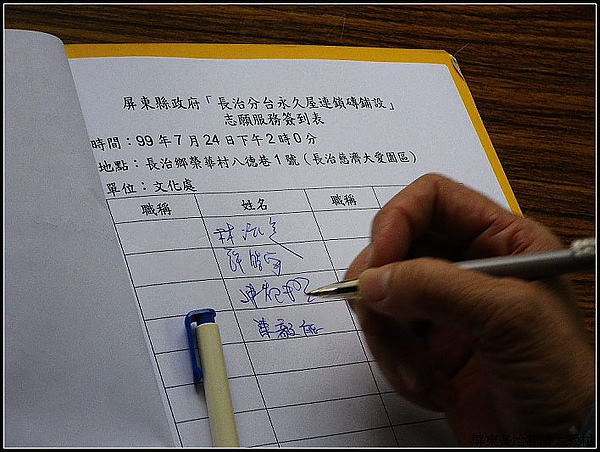 屏東縣政府「長治分台永久屋連鎖磚鋪設」
志願服務簽到表
時間：99年7月24日下午2時0分
地點：長治鄉榮華村八德巷1號（長治慈濟大愛園區）
單位：文化處
職稱 姓名 職稱